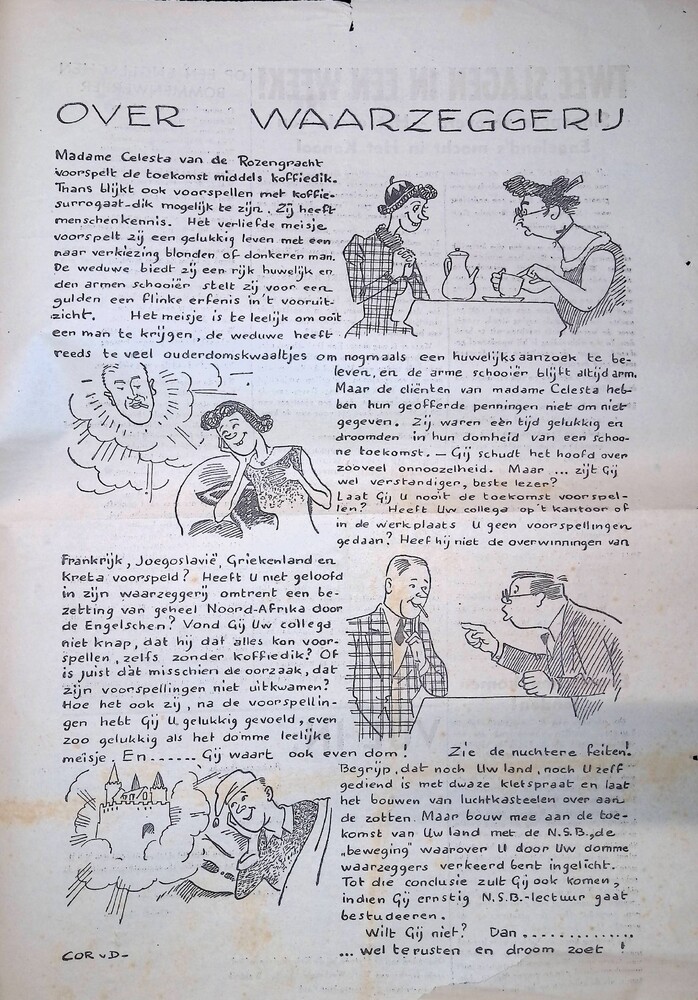 OVER WAARZEGGERIJ
Madame Celesta van de Rozengracht
voorspelt de toekomst middels koffiedik.
Thans blijkt ook voorspellen met koffie-
surrogaat-dik mogelijk te zijn. Zij heeft
menschenkennis. Het verliefde meisje
voorspelt zij een gelukkig leven met een
naar verkiezing blonden of donkeren man.
De weduwe biedt zij een rijk huwelijk en
den armen schooiër stelt zij voor een
gulden een flinke erfenis in't vooruit-
zicht. Het meisje is te leelijk om ooit
een man te krijgen, de weduwe heeft
reeds te veel ouderdomskwaaltjes om nogmaals een huwelijksaanzoek te be-
leven, en de arme schooiër blijft altijd arm.
Maar de cliënten van madame Celesta heb-
ben hun geofferde penningen niet om niet
gegeven. Zij waren een tijd gelukkig en
droomden in hun domheid van een schoo-
ne toekomst. — Gij schudt het hoofd over
zooveel onnoozelheid. Maar ... zijt Gij
wel verstandiger, beste lezer?
Laat Gij U nooit de toekomst voorspel-
len? Heeft Uw collega op't kantoor of
in de werkplaats U geen voorspellingen
gedaan? Heef hij niet de overwinningen van
Frankrijk, Joegoslavië, Griekenland en
Kreta voorspeld? Heeft U niet geloofd
in zijn waarzeggerij omtrent een be-
zetting van geheel Noord-Afrika door
de Engelschen? Vond Gij Uw collega
niet knap, dat hij dat alles kon voor-
spellen, zelfs zonder koffiedik? Of
is juist dàt misschien de oorzaak, dat
zijn voorspellingen niet uitkwamen?
Hoe het ook zij, na de voorspellin-
gen hebt Gij U gelukkig gevoeld, even
zoo gelukkig als het domme leelijke
meisje. En...... Gij waart ook even dom! Zie de nuchtere feiten!
Begrijp, dat noch Uw land, noch U zelf
gediend is met dwaze kletspraat en laat
het bouwen van luchtkasteelen over aan
de zotten. Maar bouw mee aan de toe-
komst van Uw land met de N.S.B., de
„beweging" waarover U door Uw domme
waarzeggers verkeerd bent ingelicht.
Tot die conclusie zult Gij ook komen,
indien Gij ernstig N.S.B.-lectuur gaat
bestudeeren.
Wilt Gij niet? Dan ..............
... wel terusten en droom zoet !
COR v D-